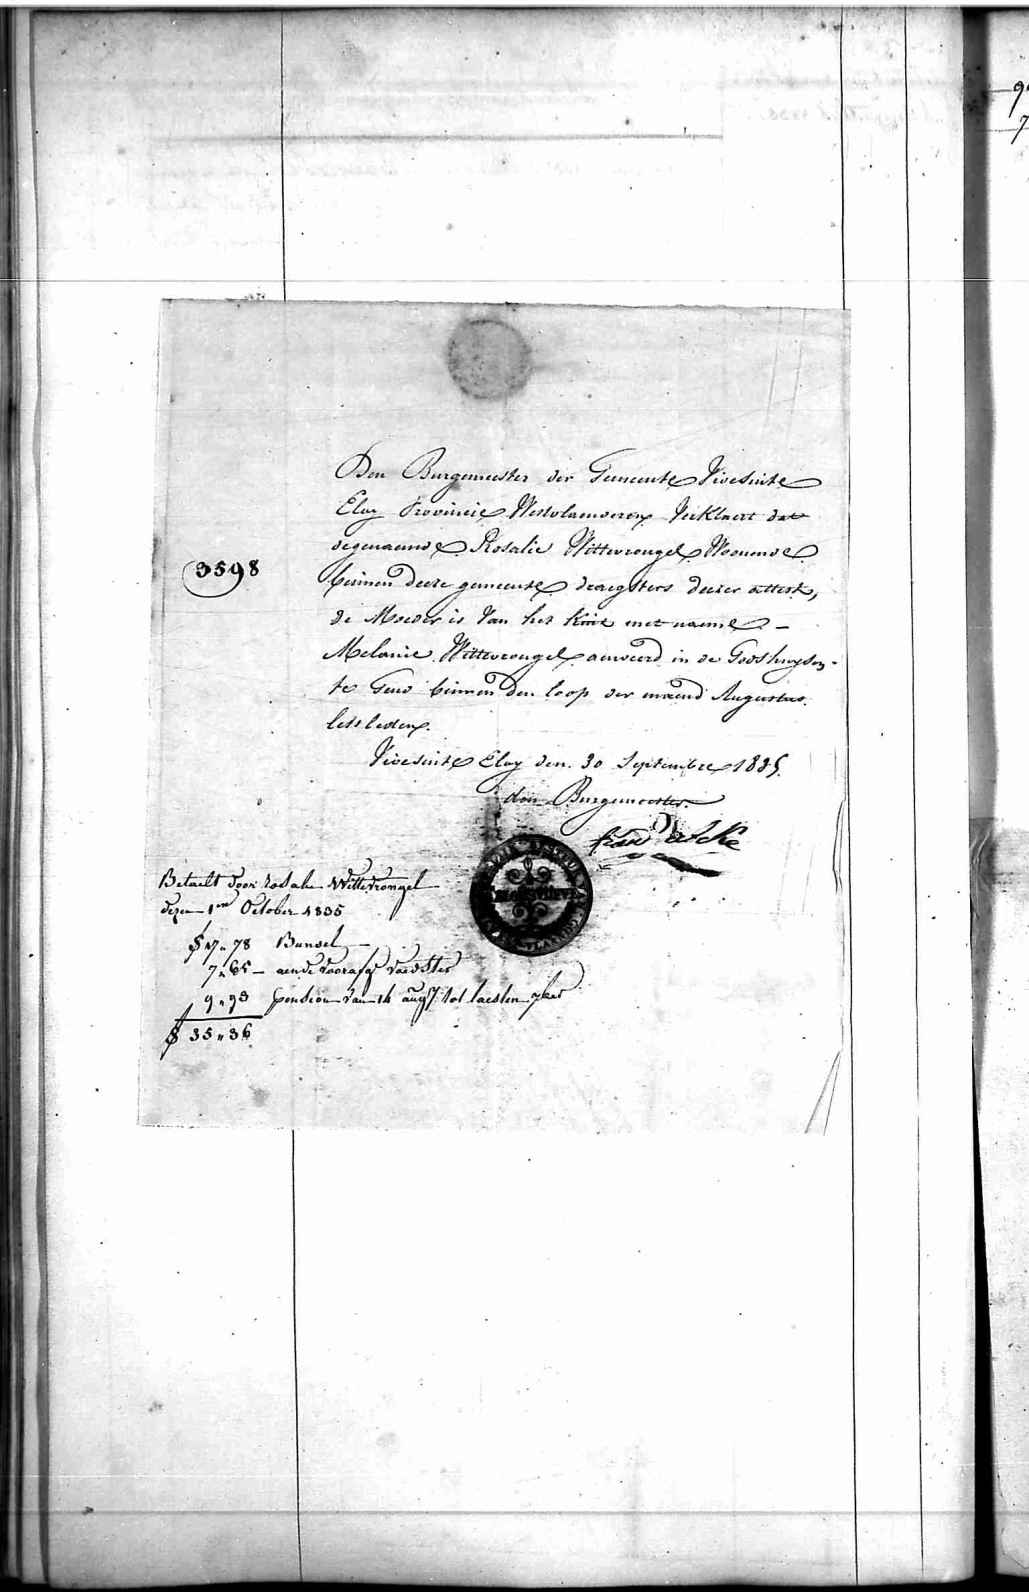 Den Burgemeester der Gemeente Vivesinte
Eloy Provincie Westvlaenderen Verklaert dat
degenaemde Rosalie Wittevrongel Woonende
binnen deeze gemeente draegster deezer attest,
de Moeder is Van het Kind met naeme –
Melanie Wittevrongel aenveerd in de Godshuysen
te Gend binnen den loop der maend Augustus
letsleden.
Vivesinte Eloy den 30 Septembre 1835.
den Burgemeester
3598
Betaelt door Rosalie Wittevrongel
dezen 1en October 1835
17„78 Bunsel
7„65 – aen de voorafge voedster
9„93 pension van 14 augt tot laesten 7ber
35„36